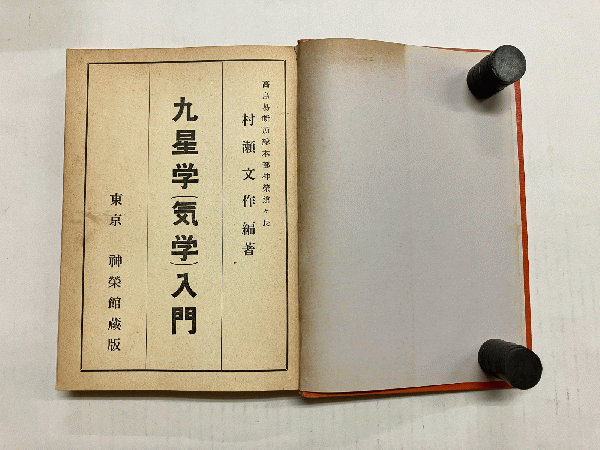 高島易断所総本部神榮館々長
村瀬文作編著
九星学(気学)入門
東京 神榮館蔵版